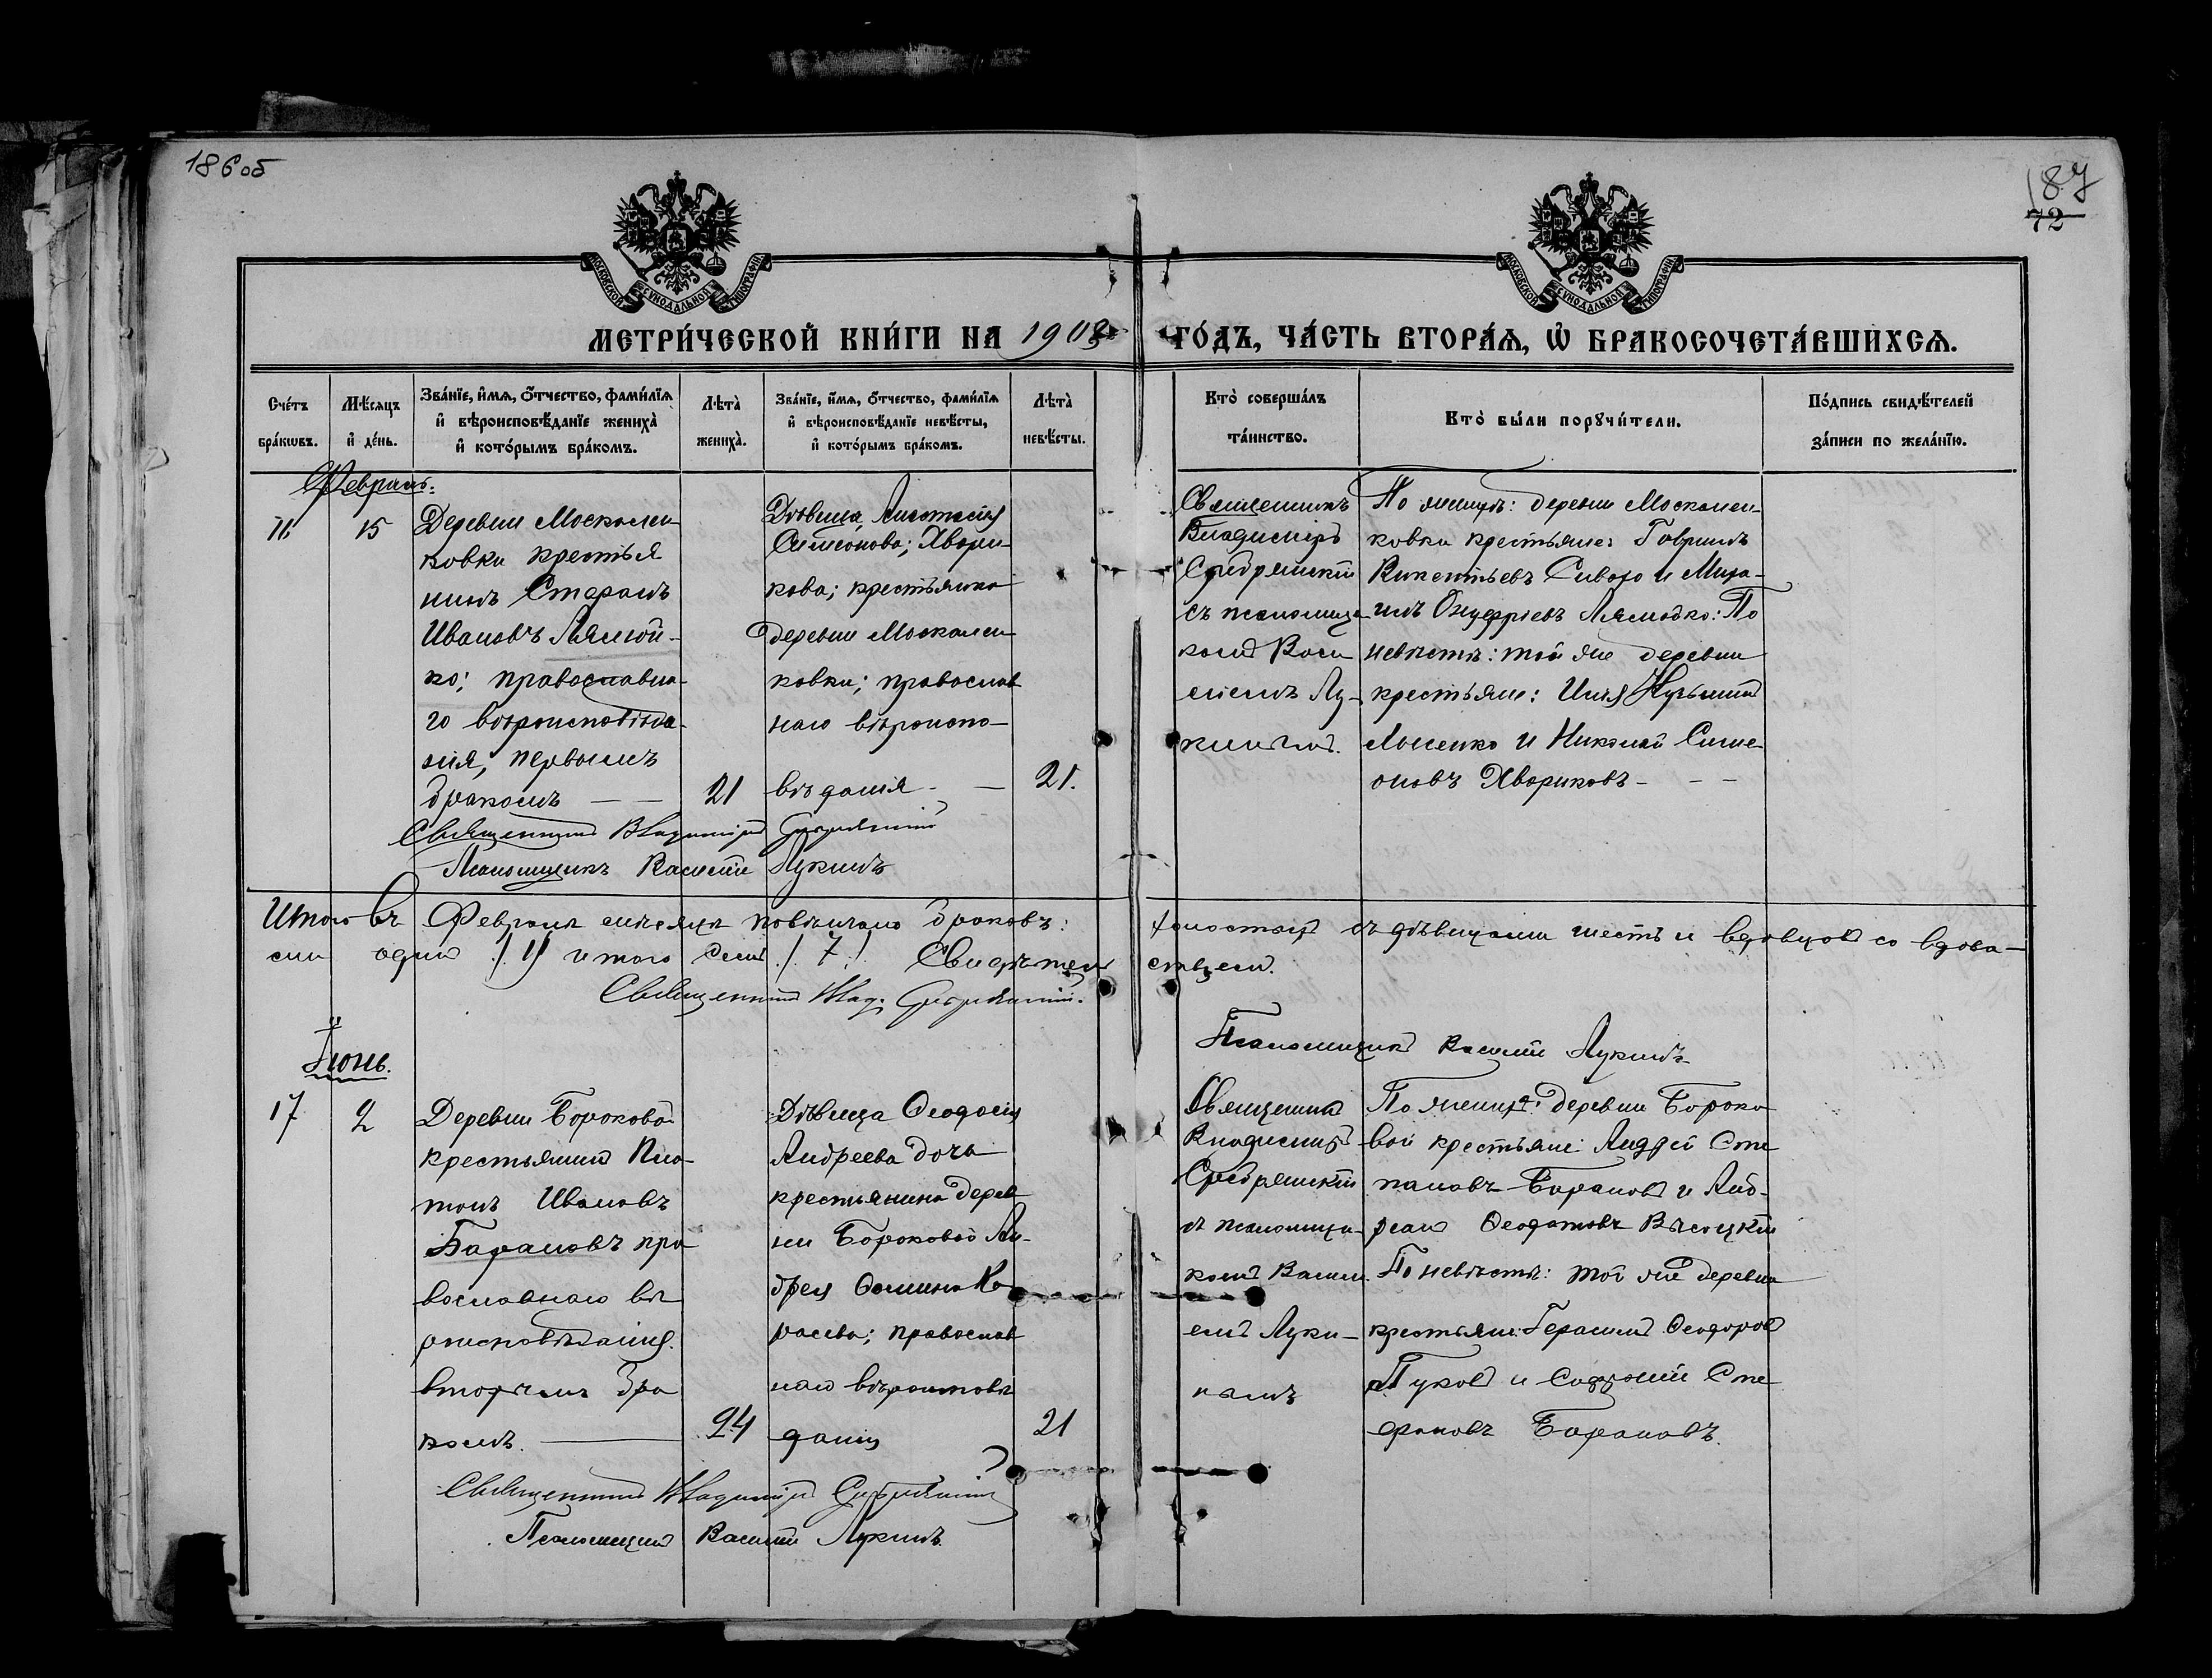 186об
187
72
МОСКОВСКОЙ СѴНОДАЛЬНОЙ ТИПОГРАФІИ
МОСКОВСКОЙ СѴНОДАЛЬНОЙ ТИПОГРАФІИ
МЕТРИ́ЧЕСКОЙ КНИ́ГИ НА 1908 ГО́ДЪ, ЧА́СТЬ ВТОРА́Ѧ, Ѿ БРАКОСОЧЕТА́ВШИХСѦ.
Сче́тъ
бра́кѡвъ.
Мѣ́сяцъ
и҆ де́нь.
Зва́нїе, и҆́мѧ, ѻ҆́тчество, фами́лїѧ
и҆ вѣроисповѣ́данїе жениха̀
и҆ кото́рымъ бра́комъ.
Лѣта̀
жениха̀.
Зва́нїе, и҆́мѧ, ѻ҆́тчество, фами́лїѧ
и҆ вѣроисповѣ́данїе невѣ́сты,
и҆ кото́рымъ бра́комъ.
Лѣта̀
невѣ́сты.
Кто̀ соверша́лъ
та́инство.
Кто̀ бы́ли порꙋчи́тели.
По́дпись свидѣ́телей
за́писи по жела́нїю.
Февраль.
15
Деревни Москален-
ковки крестья
нинъ Стефанъ
Ивановъ Лямой-
ко; православна-
го вѣроисповѣда-
нія, первымъ
бракомъ — —
21
Дѣвица, Анастасія
Симеонова; Хвори-
кова; крестьянка
деревни Москален
ковки; православ
наго вѣроиспо-
вѣданія - —
21.
Священникъ
Владиміръ
Сребрянскій
съ псаломщи-
комъ Васи
ліемъ Лу-
кинымъ.
По женихѣ: деревни Москален-
ковки крестьяне: Гавріилъ
Викентьевъ Сиваго и Миха-
илъ Онуфріевъ Лямойко: По
невѣстѣ: той же деревни
крестьяне: Илья Кузьминъ
Лысенко и Николай Симе
оновъ Хвориковъ - - -
Священникъ Владиміръ Сребрянскій
Псаломщикъ Василій Лукинъ
Итого въ Февралѣ мѣсяцѣ повѣнчано браковъ: холостыхъ съ дѣвицами шесть и вдовцовъ со вдова-
ми одинъ /1/ итого семь /7/ Свидѣтель
ствуемъ.
Священникъ Влад. Сребрянскій.
Псаломщикъ Василій Лукинъ
Іюнь.
17
2
Деревни Бороковой
крестьянинъ Пла-
тонъ Ивановъ
Барановъ пра
вославнаго вѣ
роисповѣданія.
вторымъ бра
комъ. —
24
Дѣвица Ѳеодосія
Андреева дочь
крестьянина дерев
ни Бороковой Ан-
дрея Ѳомина Ка
расева; православ
наго вѣроисповѣ
данія
21
Священникъ
Владиміръ
Сребрянскій
съ псаломщи-
комъ Васил
емъ Луки-
нымъ
По женихѣ: деревни Бороко
вой крестьяне: Андрей Сте
пановъ Барановъ и Анд-
рей Ѳеодотовъ Высоцкій
По невѣстѣ: той же деревни
крестьяне: Герасимъ Ѳеодоровъ
Пуховъ и Софроній Сте
фановъ Барановъ.
Священникъ Владиміръ Сребрянскій
Псаломщикъ Василій Лукинъ.